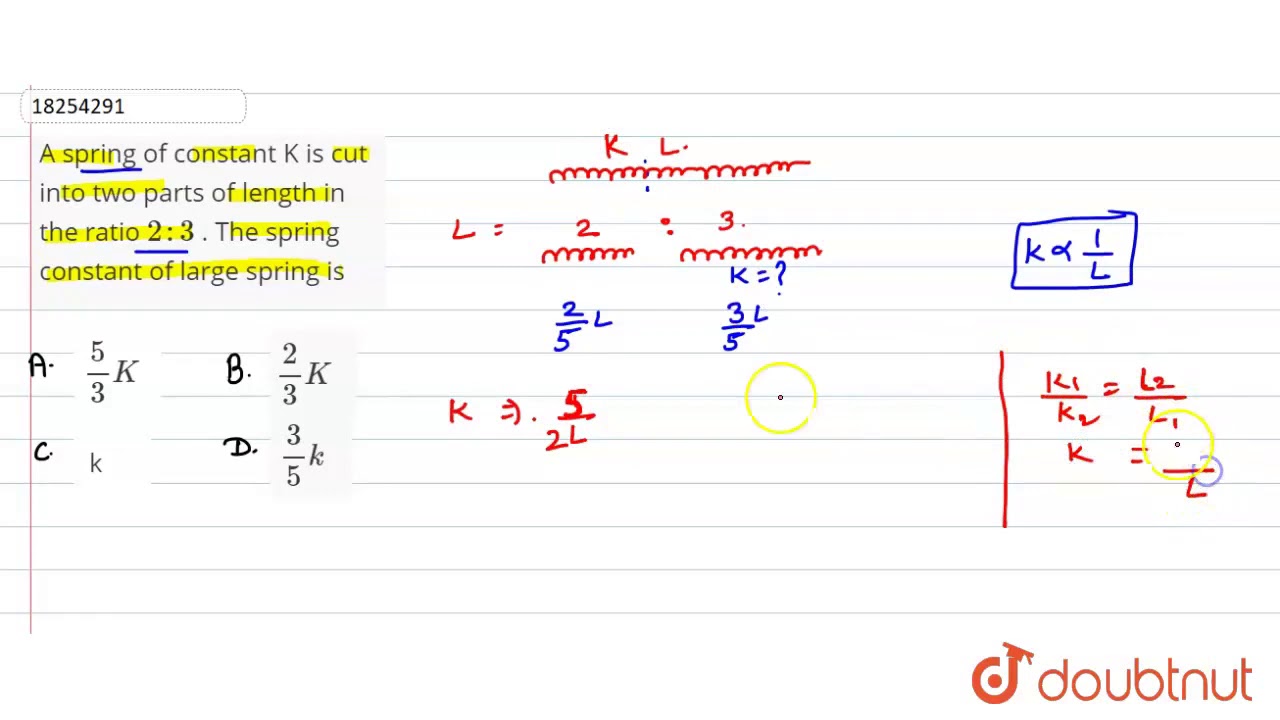 18254291
A spring of constant K is cut
into two parts of length in
the ratio 2 : 3 . The spring
constant of large spring is
A. 5/3 K B. 2/3 K
C. k D. 3/5 k
K L.
L = 2 : 3.
K = ?
2/5 L 3/5 L
K ⇒ . 5/2L
K ∝ 1/L
K1/K2 = L2/L1
K = /L
doubtnut